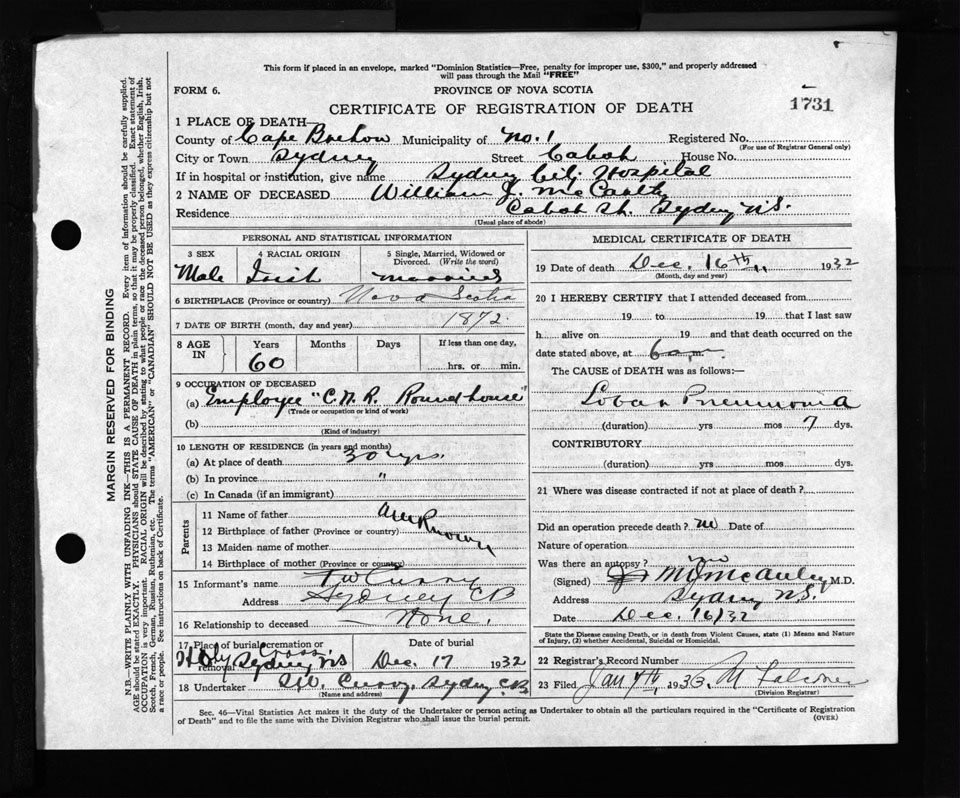 This form if placed in an envelope, marked "Dominion Statistics—Free, penalty for improper use, $300," and properly addressed
will pass through the Mail "FREE"
FORM 6.
PROVINCE OF NOVA SCOTIA
CERTIFICATE OF REGISTRATION OF DEATH
1731
1 PLACE OF DEATH
County of Cape Breton Municipality of No. 1 Registered No.
(For use of Registrar General only)
City or Town Sydney Street Cabot House No.
If in hospital or institution, give name Sydney City Hospital
2 NAME OF DECEASED William J. McCarthy
Residence Cabot St. Sydney N.S.
(Usual place of abode)
PERSONAL AND STATISTICAL INFORMATION
3 SEX 4 RACIAL ORIGIN 5 Single, Married, Widowed or Divorced. (Write the word)
Male Irish married
6 BIRTHPLACE (Province or country) Nova Scotia
7 DATE OF BIRTH (month, day and year) 1872.
8 AGE IN Years Months Days If less than one day,
60 hrs. or min.
9 OCCUPATION OF DECEASED
(a) Employee "C.N.R. Roundhouse"
(Trade or occupation or kind of work)
(b)
(Kind of industry)
10 LENGTH OF RESIDENCE (in years and months)
(a) At place of death 30 yrs.
(b) In province "
(c) In Canada (if an immigrant)
Parents
11 Name of father
12 Birthplace of father (Province or country)
13 Maiden name of mother
14 Birthplace of mother (Province or country)
15 Informant's name Curry
Address Sydney CB
16 Relationship to deceased None.
17 Place of burial, cremation or removal Holy Cross Sydney NS
Date of burial Dec. 17 1932
18 Undertaker Curry, Sydney C.B.
(Name and address)
MEDICAL CERTIFICATE OF DEATH
19 Date of death Dec. 16th 1932
(Month, day and year)
20 I HEREBY CERTIFY that I attended deceased from
19 to 19 that I last saw
h alive on 19 and that death occurred on the
date stated above, at 6 a.m.
The CAUSE of DEATH was as follows:—
Lobar Pneumonia
(duration) yrs mos 7 dys.
CONTRIBUTORY
(duration) yrs. mos. dys.
21 Where was disease contracted if not at place of death?
Did an operation precede death? no Date of
Nature of operation
Was there an autopsy? no
(Signed) McAuley M.D.
Address Sydney N.S.
Date Dec. 16/32
State the Disease causing Death, or in death from Violent Causes, state (1) Means and Nature
of Injury, (2) whether Accidental, Suicidal or Homicidal.
22 Registrar's Record Number
23 Filed Jan 4th, 1933. M Falconer
(Division Registrar)
Sec. 46—Vital Statistics Act makes it the duty of the Undertaker or person acting as Undertaker to obtain all the particulars required in the "Certificate of Registration
of Death" and to file the same with the Division Registrar who shall issue the burial permit.
(OVER)
MARGIN RESERVED FOR BINDING
N.B.—WRITE PLAINLY WITH UNFADING INK—THIS IS A PERMANENT RECORD. Every item of information should be carefully supplied.
AGE should be stated EXACTLY. PHYSICIANS should STATE CAUSE OF DEATH in plain terms, so that it may be properly classified. Exact statement of
OCCUPATION is very important. RACIAL ORIGIN will be described by stating to what people or race the deceased person belonged, whether English, Irish,
Scotch, French, German, Russian, Ruthenian, etc. The terms "AMERICAN" or "CANADIAN" SHOULD NOT BE USED as they express citizenship but not
a race or people. See instructions on back of Certificate.